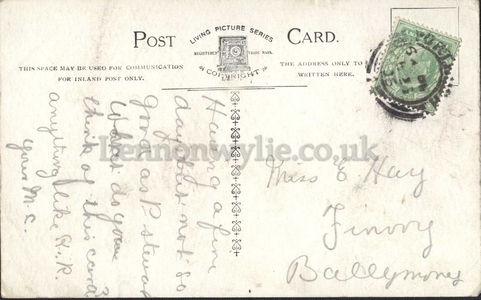 POST CARD.
LIVING PICTURE SERIES
REGISTERED TRADE MARK.
COPYRIGHT
THIS SPACE MAY BE USED FOR COMMUNICATION
FOR INLAND POST ONLY.
THE ADDRESS ONLY TO
WRITTEN HERE.
Having a fine
day but not so
good as P. stewart
What do you
think of this card?
anything like R.R.
yours M. E.
Miss E Hay
Finvoy
Ballymoney
Lennonwylie.co.uk